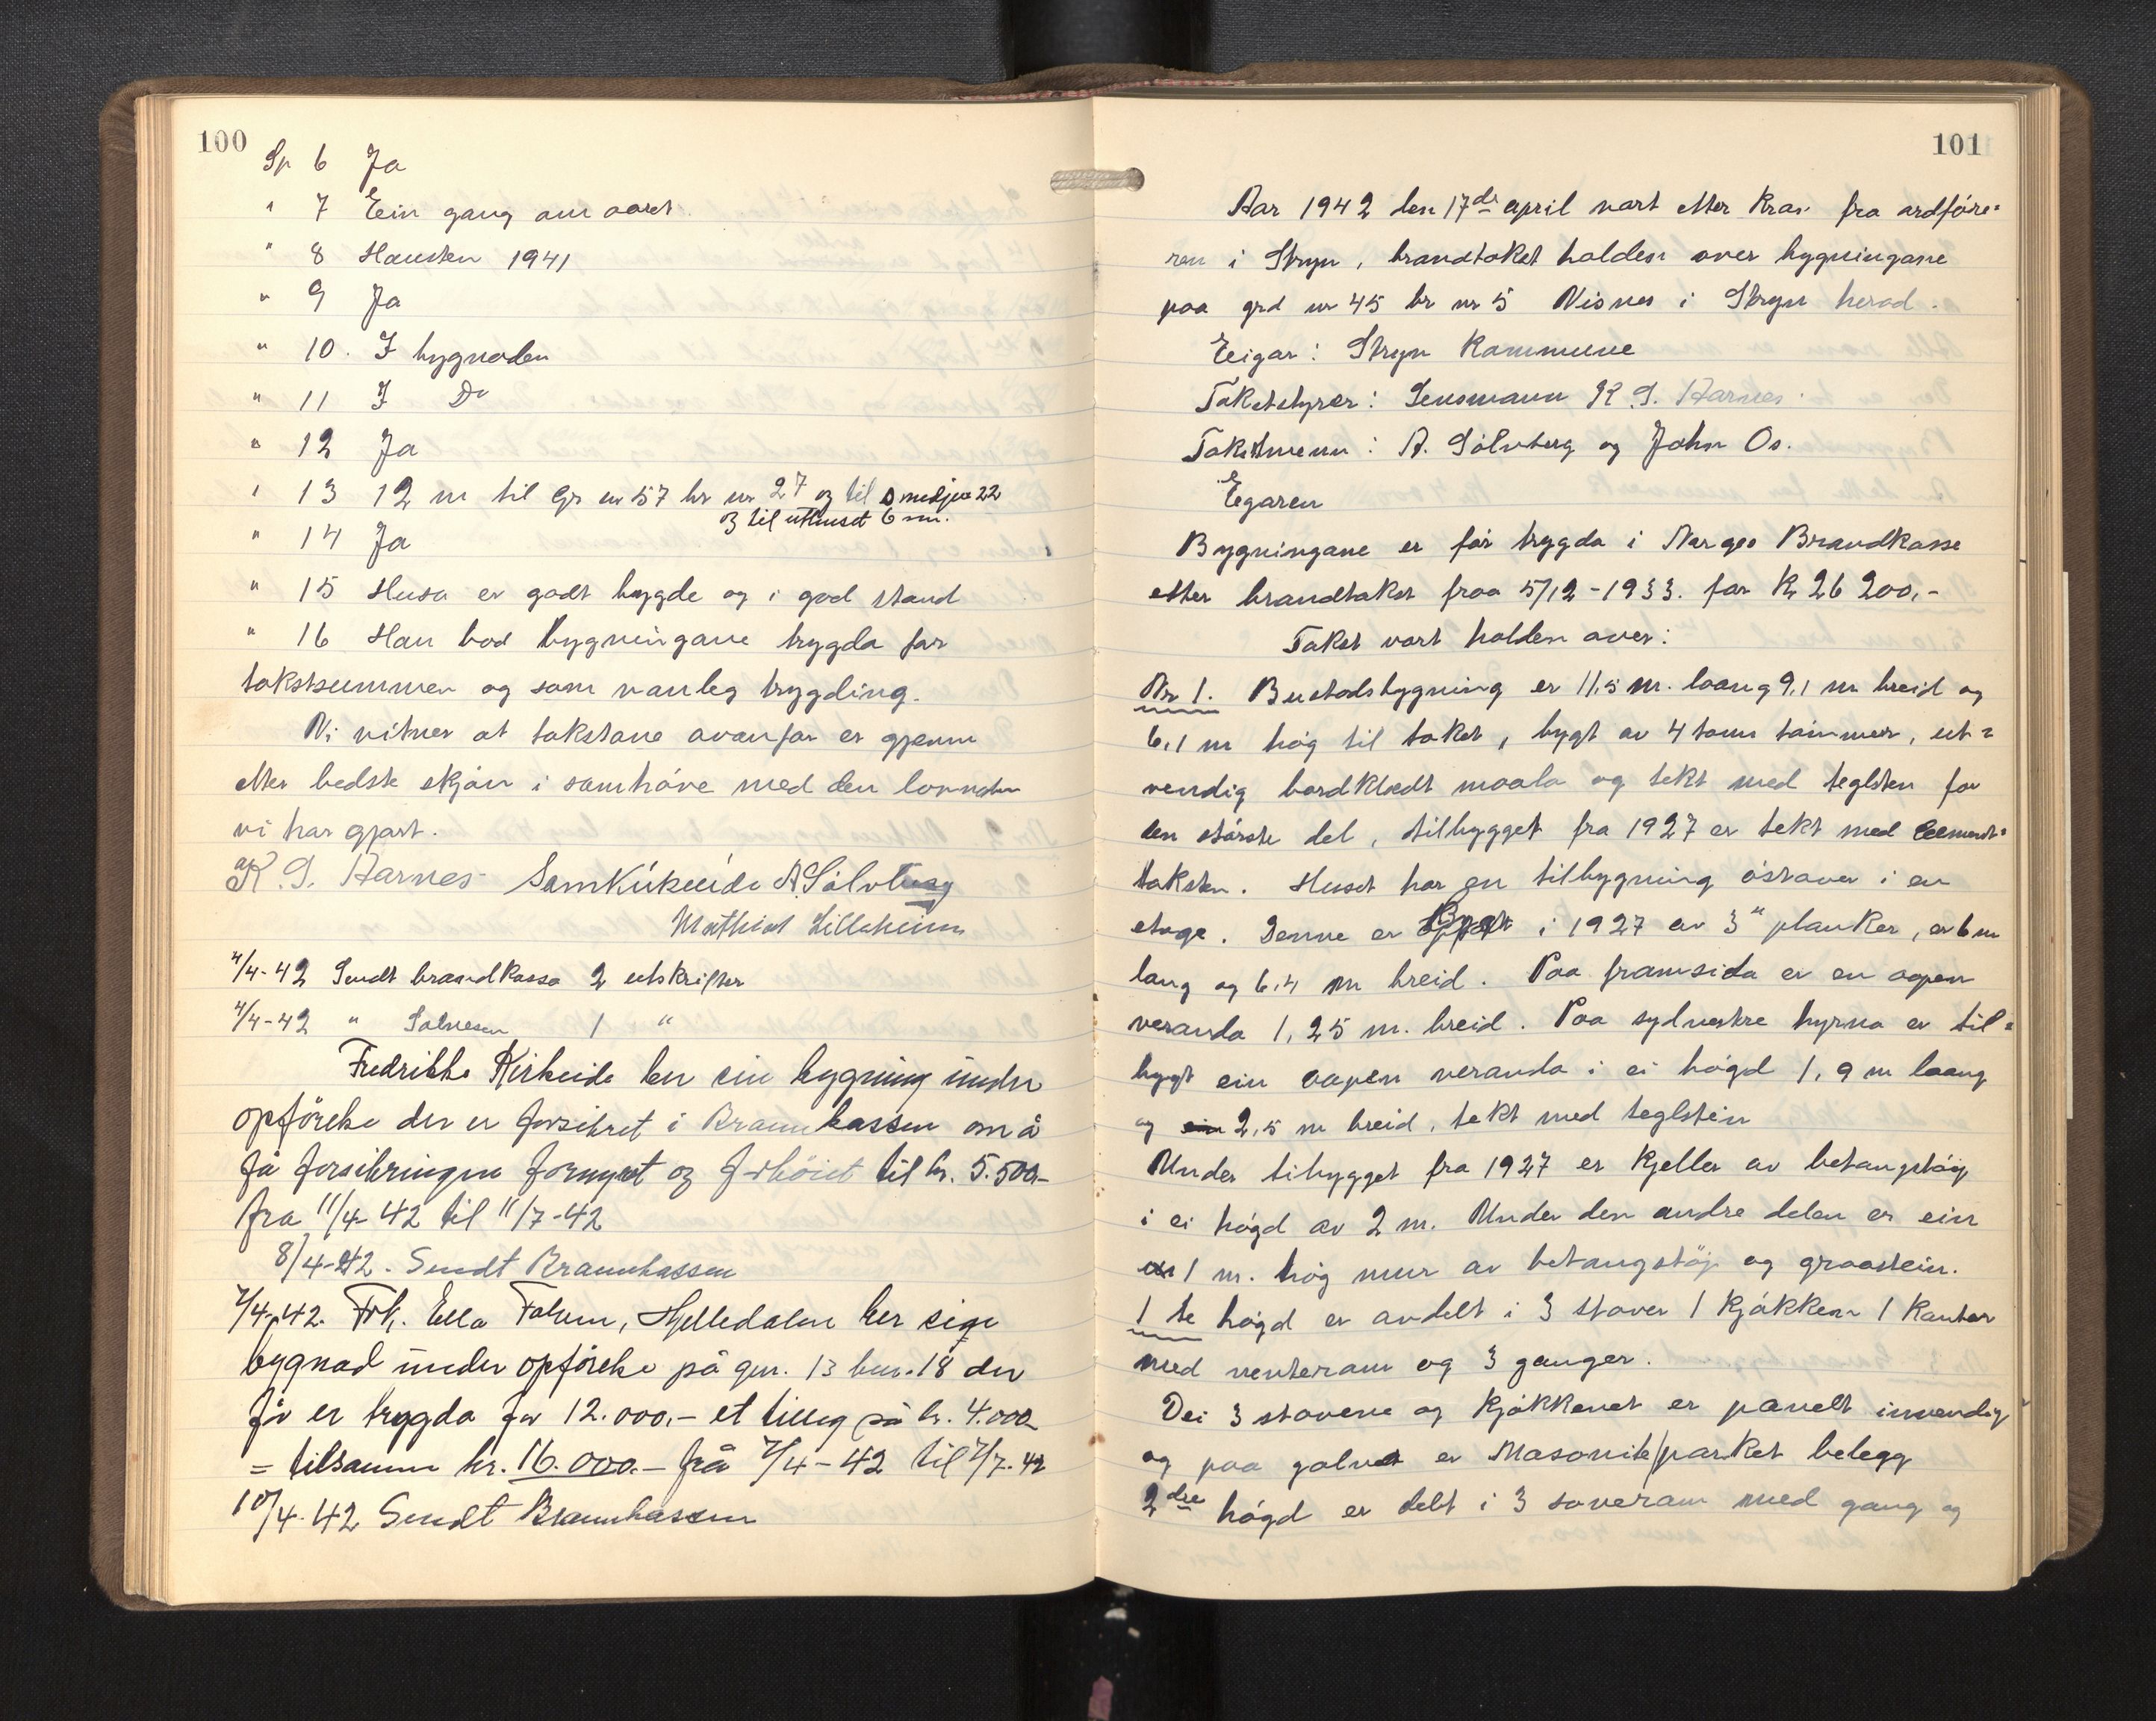 100
Sp 6 Ja
" 7 Ein gang om aaret.
" 8 Hausten 1941
" 9 Ja
" 10. I bygnaden
" 11 I Do
" 12 Ja
" 13 12 m til Gr nr 57 br nr 27 og til smidjua 22
og til uthuset 6 m.
" 14 Ja
" 15 Husa er godt bygde og i god stand
" 16 Han bad bygningane trygda for
takstsummen og som vanleg trygding.
Vi vitner at takstane ovanfor er gjenne
etter bedste skjön i samhöve med den lovnaden
vi har gjort.
K. S. Harnes A. Sølvberg
Mathias Lilleheim
4/4-42 Sendt brandkassa 2 utskrifter
4/4-42 " 1 "
Fredrikke Kirkeide ber ein bygning under
opförelse der er forsikret i Brannkassen om å
få forsikringen fornyet og forhöiet til kr. 5.500.-
fra 11/4-42 til 11/7-42
8/4-42. Sendt Brannkassen
7/4-42. Frk. Ella Folven, Hjelledalen ber sige
bygnad under opförelse på gnr. 13 bnr. 18 der
för er trygda for 12.000.- et tilleg på kr. 4.000
= tilsamm kr. 16.000.- frå 7/4-42 til 7/7-42
10/4-42 Sendt Brannkassen
101
Aar 1942 den 17de april vart etter krav fra ordföre=
ren i Stryn, brandtakst holden over bygningane
paa grd nr 45 br nr 5 Visnes i Stryn herad.
Eigar: Stryn Kommune
Takststyrer: Lensmann K. S. Harnes.
Takstmenn: A. Sölvberg og John Os.
Egaren
Bygningane er för trygda i Norges Brandkasse
etter brandtakst fraa 5/12-1933. for Kr 26 200,-
Takst vart holden over:
Nr 1. Bustadsbygning er 11,5 m. laang 9,1 m breid og
6,1 m høg til taket, bygt av 4 toms tömmer, ut=
vendig bordklædt maala og tekt med teglsten for
den störste del, tilbygget fra 1927 er tekt med Cement=
taksten. Huset har en tilbygning östover i en
etage. Denne er Bygt i 1927 av 3" planker, er 6 m
lang og 6,4 m breid. Paa framsida er en aapen
veranda 1,25 m. breid. Paa sydvestre hyrna er til=
bygt ein aapen veranda i ei högd 1,9 m laang
og 2,5 m breid, tekt med teglstein
Under tibygget fra 1927 er kjeller av betongstöip
i ei högd av 2 m. Under den andre delen er ein
1 m. høg mur av betongstöp og graastein.
1 te högd er avdelt i 3 stover 1 kjökken 1 kontor
med venterom og 3 ganger.
Dei 3 stovene og kjökkenet er panelt innvendig
og paa golvet er Masonite/parket belegg
2dre högd er delt i 3 soverom med gang og